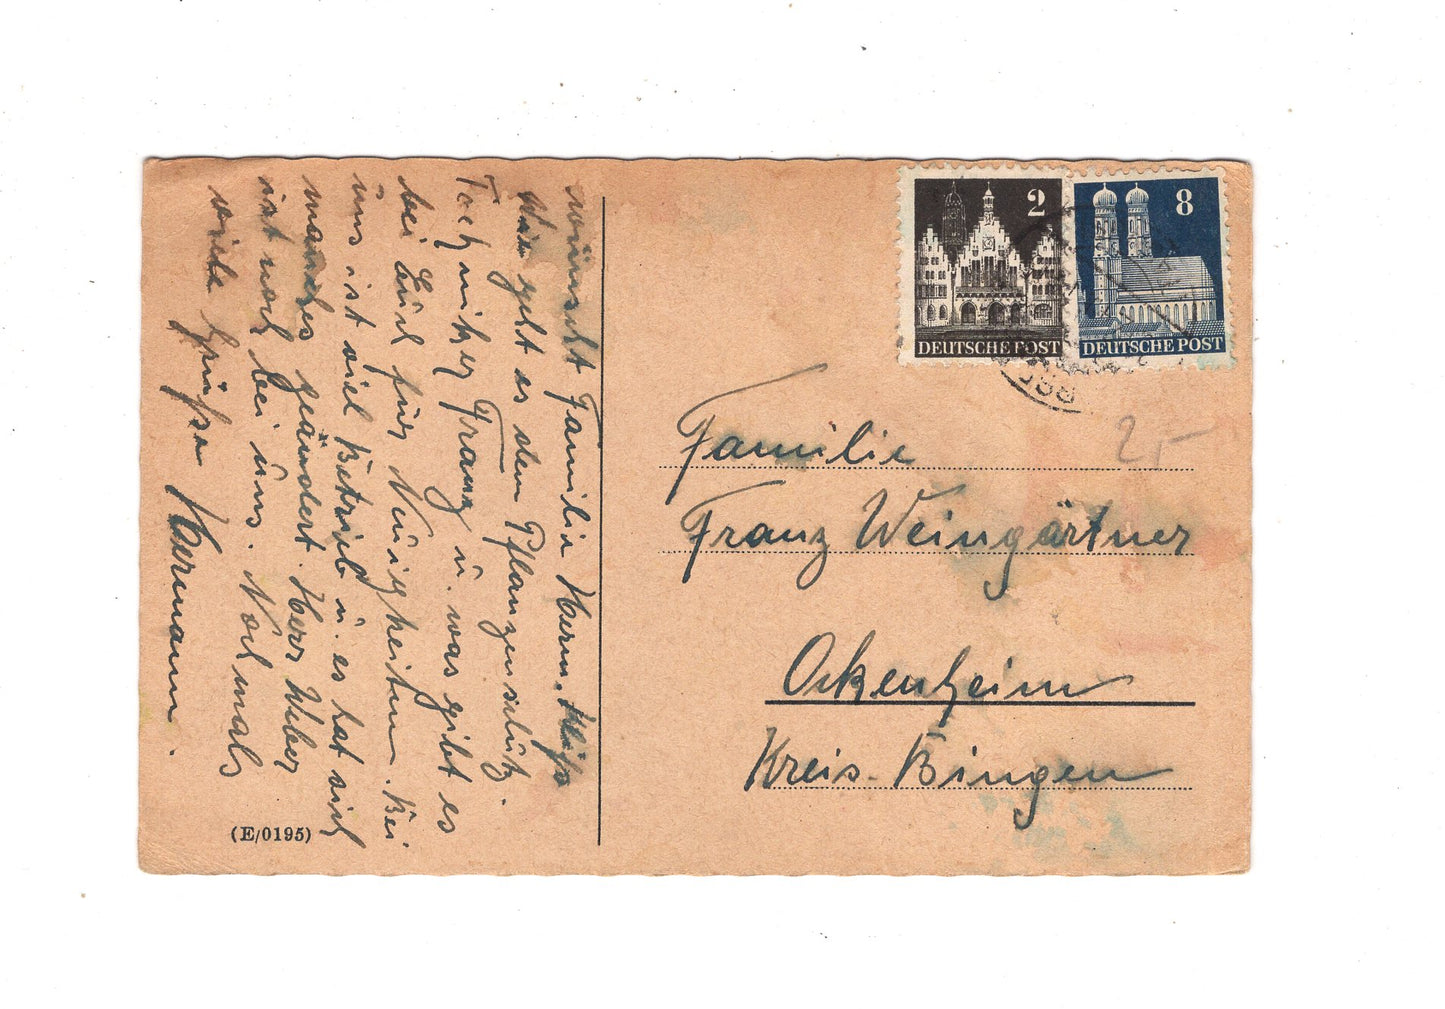 wünscht Familie Herm.
Wie geht es dem Pflanzenschutz.
Techniker Franz u. was gibt es
bei Euch für Neuigkeiten. Bei
uns ist viel Betrieb u. es hat sich
manches geändert. Herr Weber
ist noch bei uns. Nochmals
viele Grüße Hermann.
(E/0195)
2
DEUTSCHE POST
8
DEUTSCHE POST
2,-
Familie
Franz Weingärtner
Ockenheim
Kreis-Bingen